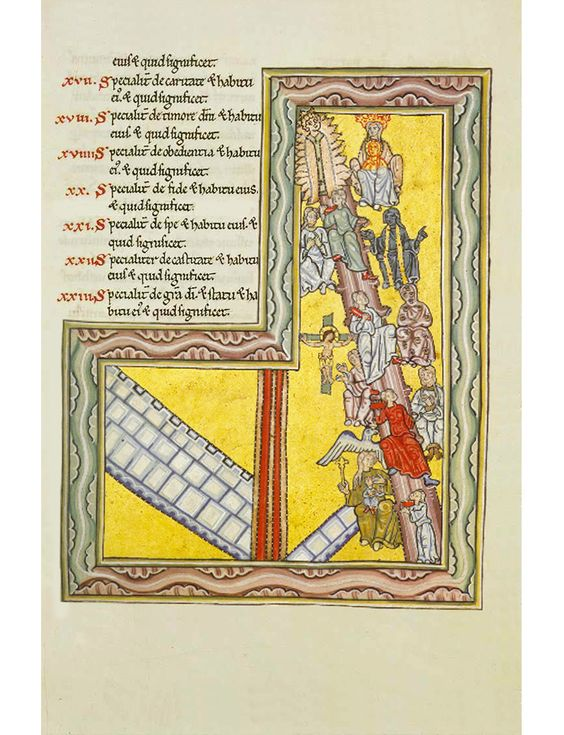 eius & quid significet.
xvii. Specialit̄ de caritate & habitu
ei⁹. & quid significet.
xviii. Specialit̄ de timore dn̄i & habitu
eius. & quid significet.
xviiii. Specialit̄ de obedientia & habitu
ei⁹. & quid significet.
xx. Specialit̄ de fide & habitu eius.
& quid significet.
xxi. Specialit̄ de spe & habitu eius. &
quid significet.
xxii. Specialiter de castitate & habitu
eius & quid significet.
xxiii. Specialit̄ de gr̄a di̅ & statu & ha
bitu ei⁹ & quid significet.